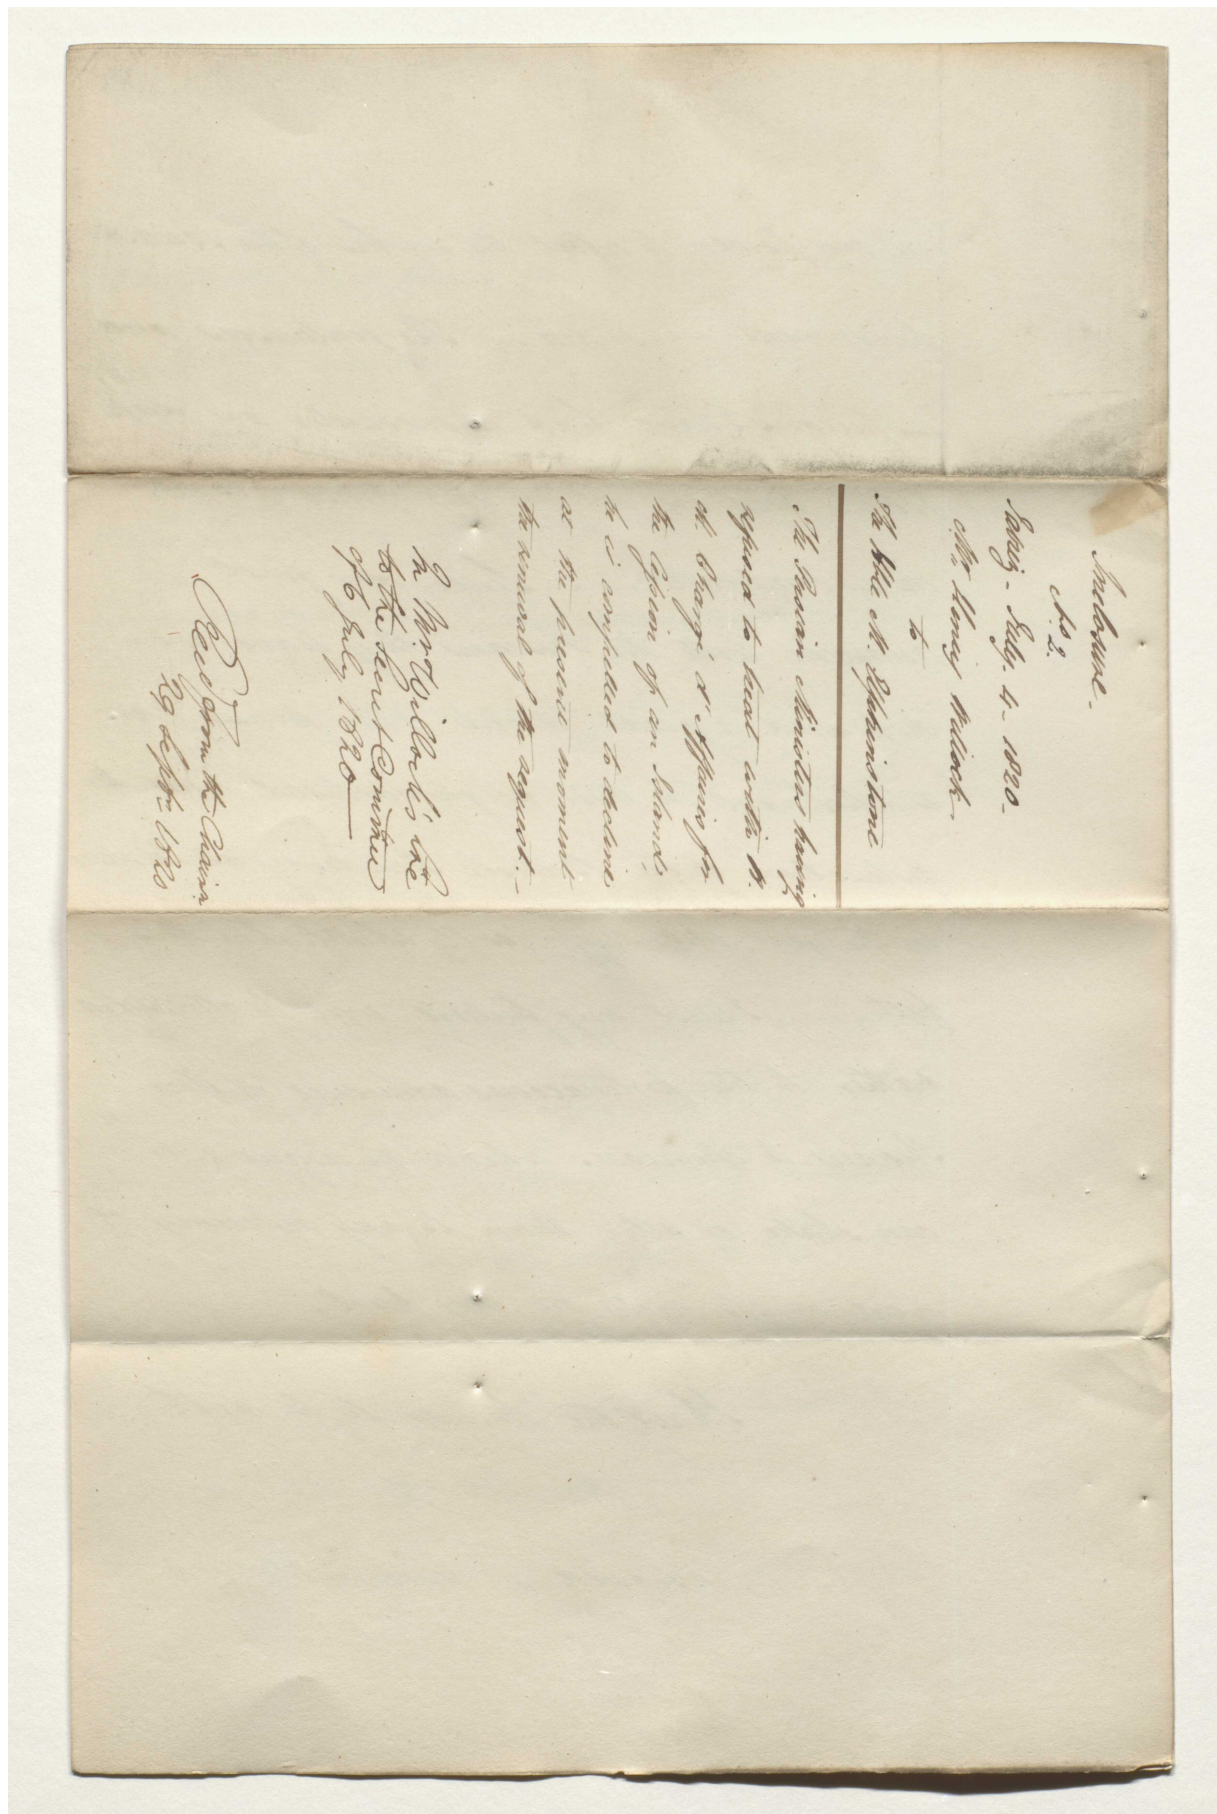 Inclosure -
No. 2.
Tabriz - July - 4 - 1820 -
Mr. Henry Willock
to
The Hble M. Elphinstone
The Persian Ministers having
refused to treat with H.
M. Chargé d'Affairs for
the Cession of an Island,
he is compelled to decline
at the present moment
the renewal of the request. -
In Mr. Willock's Lre
to the Secret Commee
of 6 July 1820
Recd from the Chairs
29 Septr. 1820